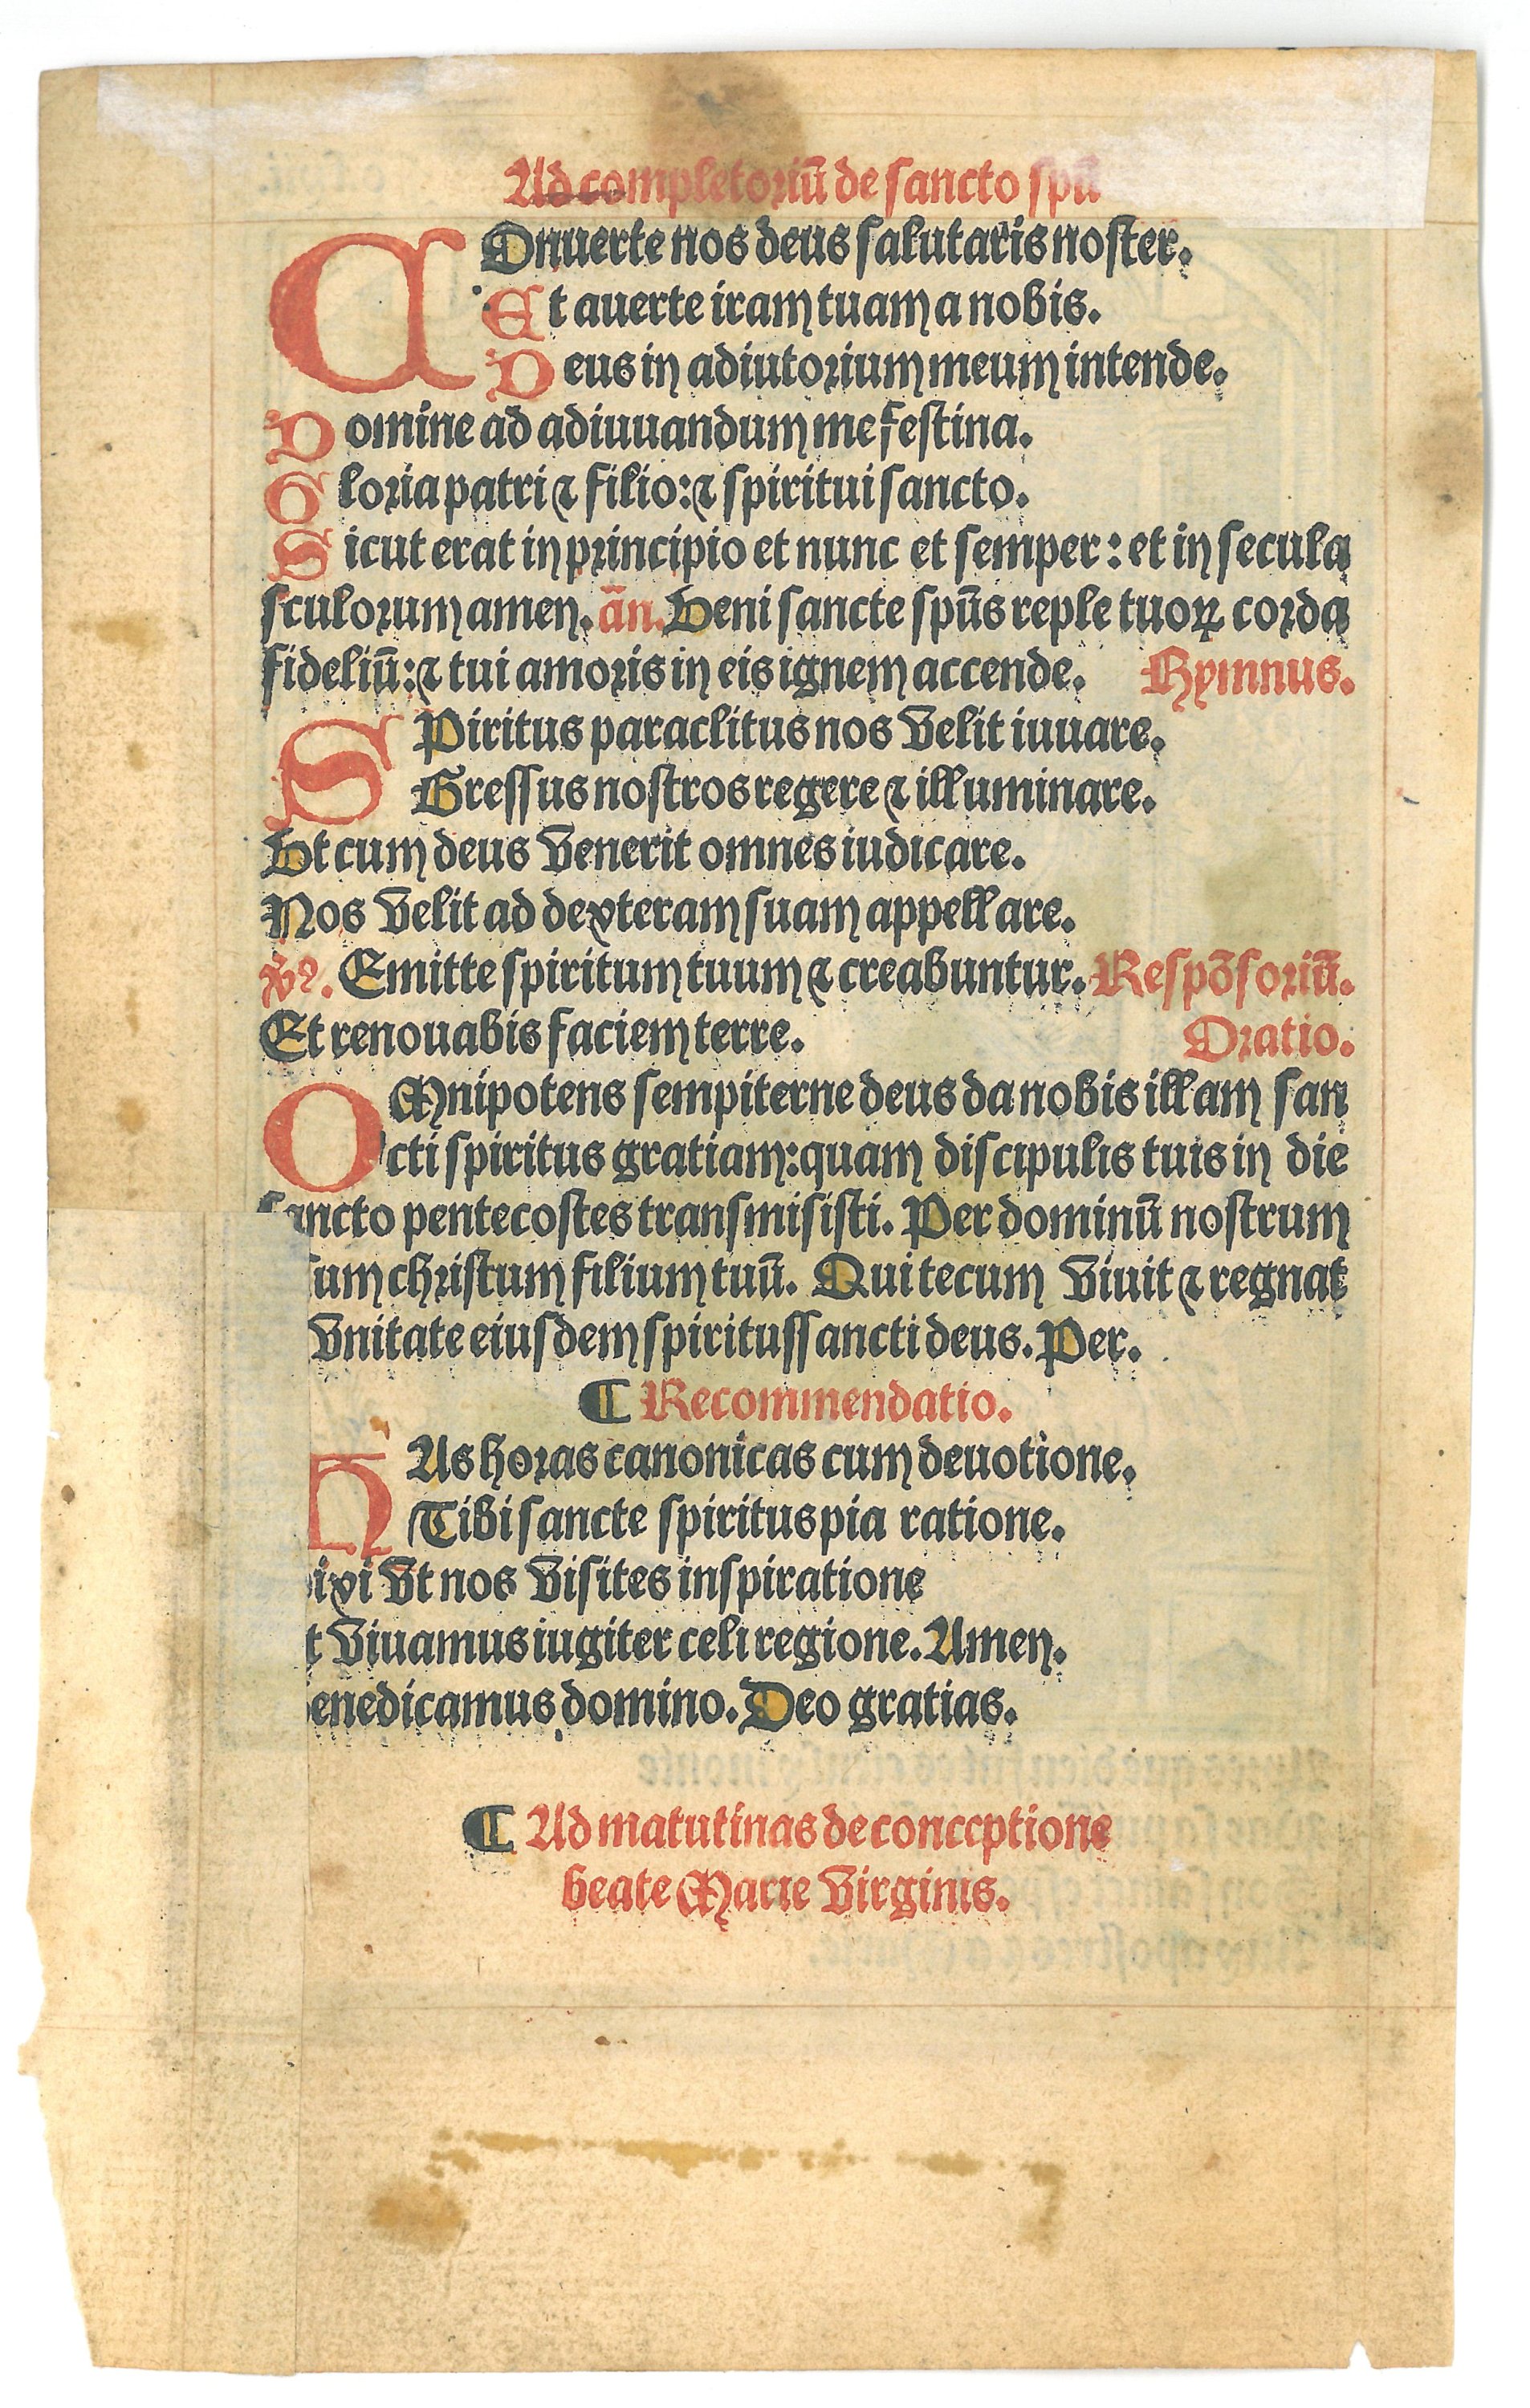 Ad completoriū de sancto spū
COnuerte nos deus salutaris noster.
Et auerte iram tuam a nobis.
Deus in adiutorium meum intende.
Domine ad adiuuandum me festina.
Gloria patri ⁊ filio: ⁊ spiritui sancto.
Sicut erat in principio et nunc et semper: et in secula
sculorum amen. an̄. Veni sancte spūs reple tuoꝝ corda
fideliū: ⁊ tui amoris in eis ignem accende. Hymnus.
SPiritus paraclitus nos velit iuuare.
Gressus nostros regere ⁊ illuminare.
Vt cum deus venerit omnes iudicare.
Nos velit ad dexteram suam appellare.
℣. Emitte spiritum tuum ⁊ creabuntur. Respōsoriū.
Et renouabis faciem terre. Oratio.
OMnipotens sempiterne deus da nobis illam san
cti spiritus gratiam: quam discipulis tuis in die
sancto pentecostes transmisisti. Per dominū nostrum
sum christum filium tuū. Qui tecum viuit ⁊ regnat
vnitate eiusdem spiritussancti deus. Per.
¶ Recommendatio.
HAs horas canonicas cum deuotione.
Tibi sancte spiritus pia ratione.
ixi vt nos visites inspiratione
t viuamus iugiter celi regione. Amen.
enedicamus domino. Deo gratias.
¶ Ad matutinas de conceptione
beate Marie virginis.